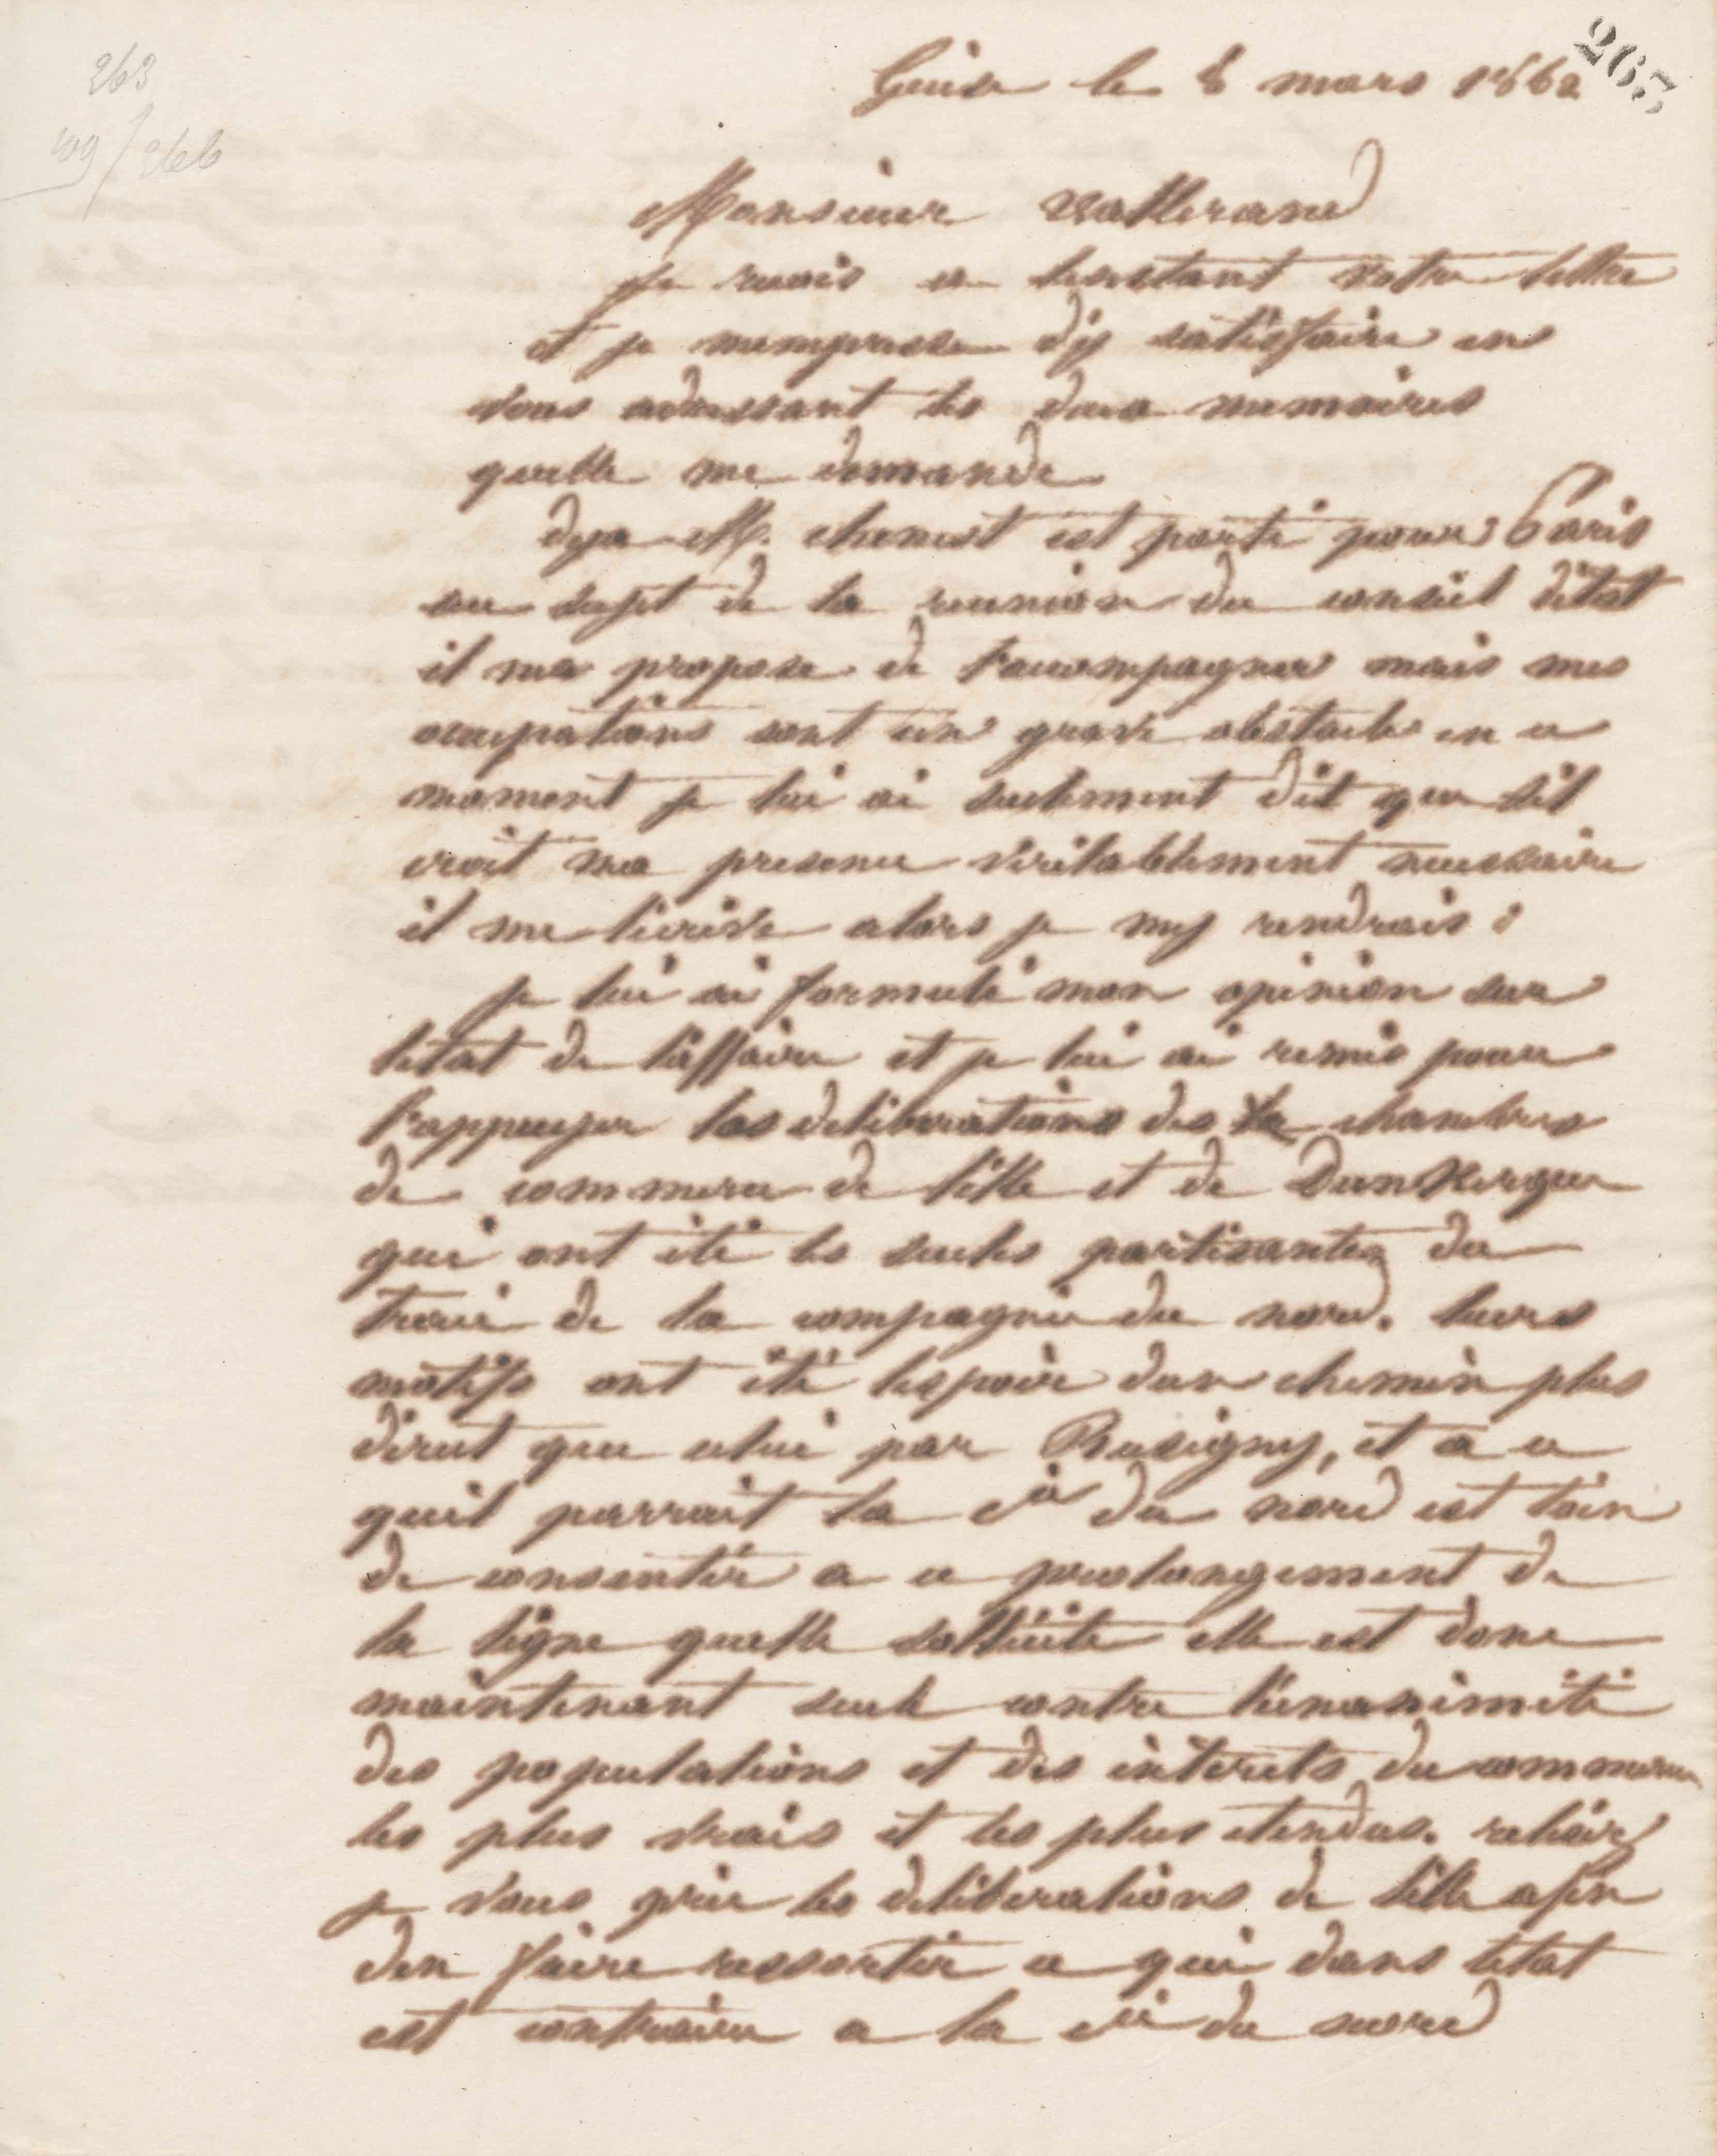 263
109/266
265
Guise le 8 mars 1862
Monsieur Vallerand
Je recois a linstant votre lettre
et je mempresse d'y satisfaire en
vous adressant les deux memoires
quelle me demande
deja M. chenest est parti pour Paris
au sujet de la reunion du conseil d'état
il ma propose de l'accompagner mais mes
occupations sont un grave obstacle en ce
moment je lui ai seulement dit que sil
croit ma presence véritablement necessaire
il me l'écrive alors je my rendrais :
je lui ai formulé mon opinion sur
letat de l'affaire et je lui ai remis pour
l'appuyer les deliberations des chambres
de commerce de lille et de Dunkerque
qui ont été les seules partisantes du
tracé de la compagnie du nord. leurs
motifs ont été lespoir dun chemin plus
direct que celui par Busigny, et a ce
quil parrait la cie du nord est loin
de consentir a ce prolongement de
la ligne quelle sollicite elle est donc
maintenant seule contre l'unanimité
des populations et des intérets du commerce
les plus vrais et les plus etendus. relisez
je vous prie les deliberations de lille afin
den faire ressortir ce qui dans letat
est contraire a la cie du nord